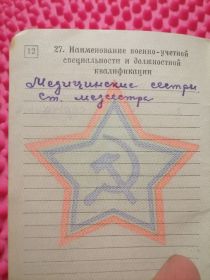 12
27. Наименование военно-учетной
специальности и должностной
квалификации
Медицинские сестры
ст. медсестра